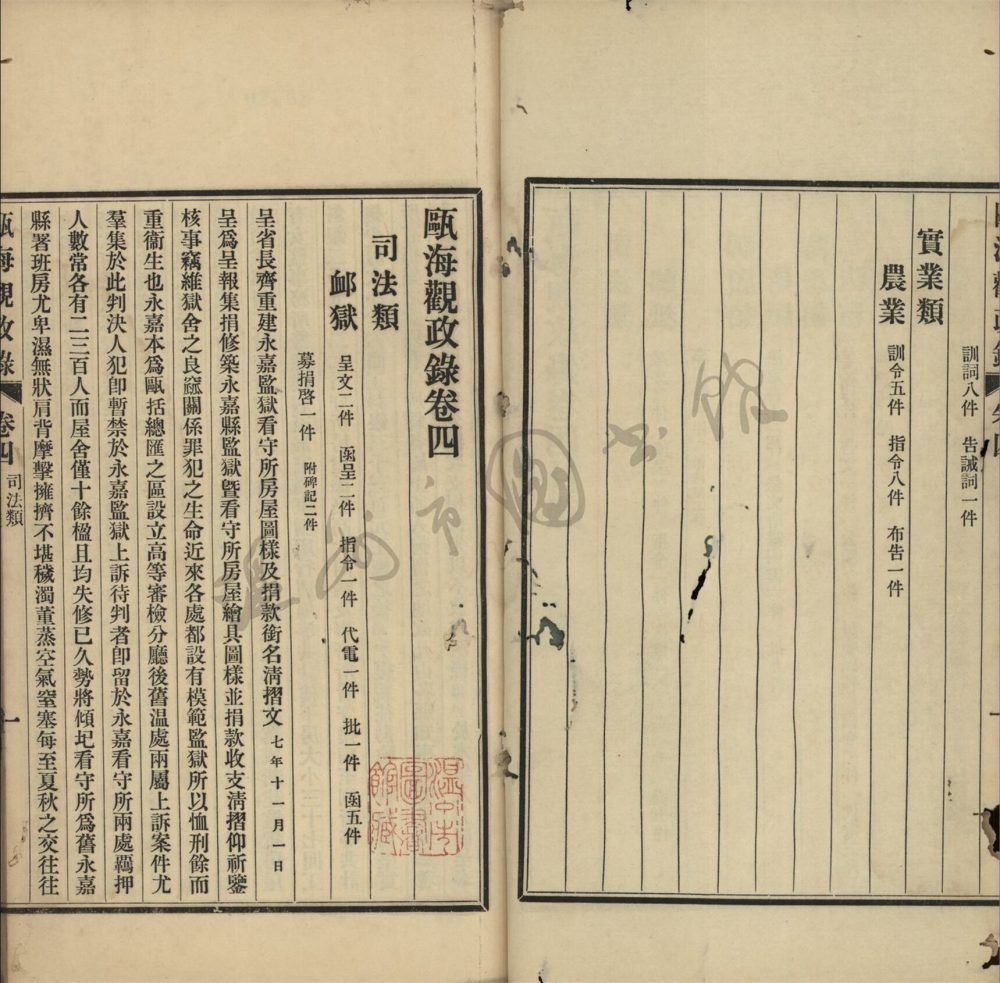 訓詞八件　告誡詞一件
實業類
農業　訓令五件　指令八件　布告一件
甌海觀政錄卷四
司法類
䘏獄　呈文二件　函呈二件　指令一件　代電一件　批一件　函五件
募捐啓一件　附碑記二件
呈省長齊重建永嘉監獄看守所房屋圖樣及捐款銜名淸摺文　七年十一月一日
呈爲呈報集捐修築永嘉縣監獄曁看守所房屋繪具圖樣並捐款收支淸摺仰祈鑒
核事竊維獄舍之良窳關係罪犯之生命近來各處都設有模範監獄所以恤刑餘而
重衞生也永嘉本爲甌括總匯之區設立高等審檢分廳後舊温處兩屬上訴案件尤
羣集於此判決人犯卽暫禁於永嘉監獄上訴待判者卽留於永嘉看守所兩處羈押
人數常各有二三百人而屋舍僅十餘楹且均失修已久勢將傾圮看守所爲舊永嘉
縣署班房尤卑濕無狀肩背摩擊擁擠不堪穢濁薰蒸空氣窒塞每至夏秋之交往往
甌海觀政錄　卷四　司法類　一
温州市圖書館
温州市圖書館藏